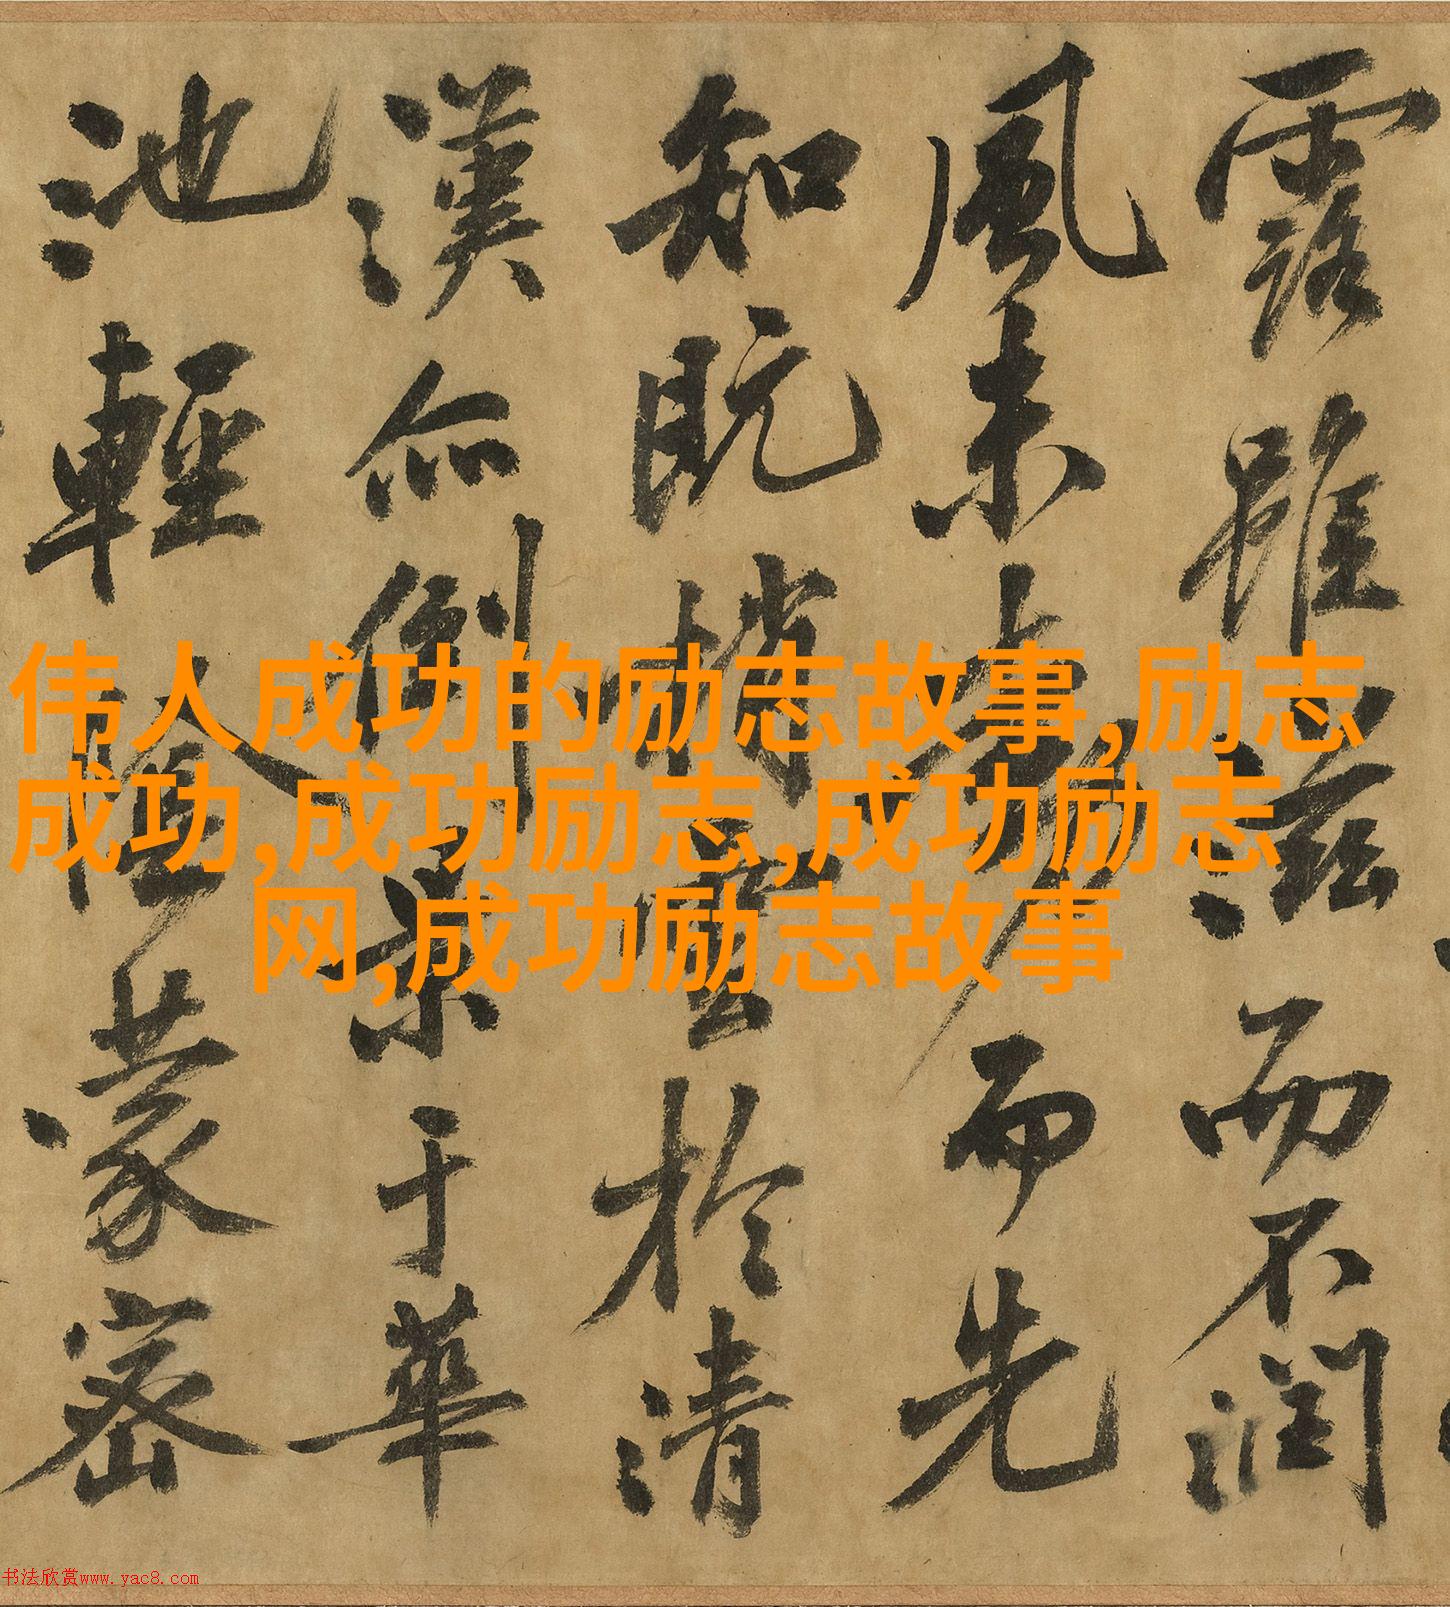 露雖滋而不潤
風未動而先
知既梢雲於清
漢亦倒景于華
池輕陰蒙密
伟人成功的励志故事,励志
成功,成功励志,成功励志
网,成功励志故事
书法欣赏www.yac8.com